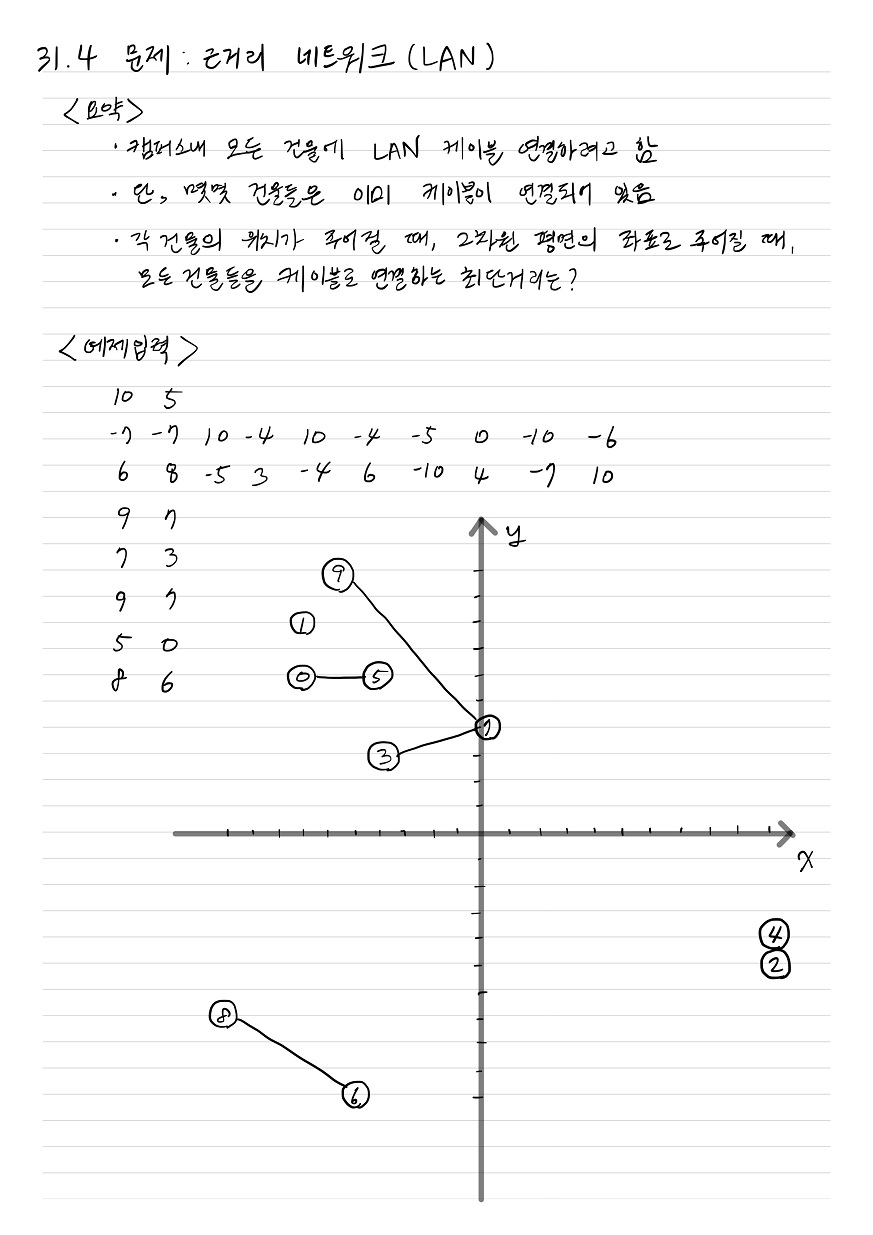 31.4 문제 : 근거리 네트워크 (LAN)
<요약>
· 캠퍼스내 모든 건물에 LAN 케이블 연결하려고 함
· 단, 몇몇 건물들은 이미 케이블이 연결되어 있음
· 각 건물의 위치가 주어질 때, 2차원 평면의 좌표로 주어질 때,
모든 건물들을 케이블로 연결하는 최단거리는?
<예제입력>
10 5
-7 -7 10 -4 10 -4 -5 0 -10 -6
6 8 -5 3 -4 6 -10 4 -7 10
9 7
7 3
9 7
5 0
8 6
y
9
1
0 5
7
3
x
4
2
8
6